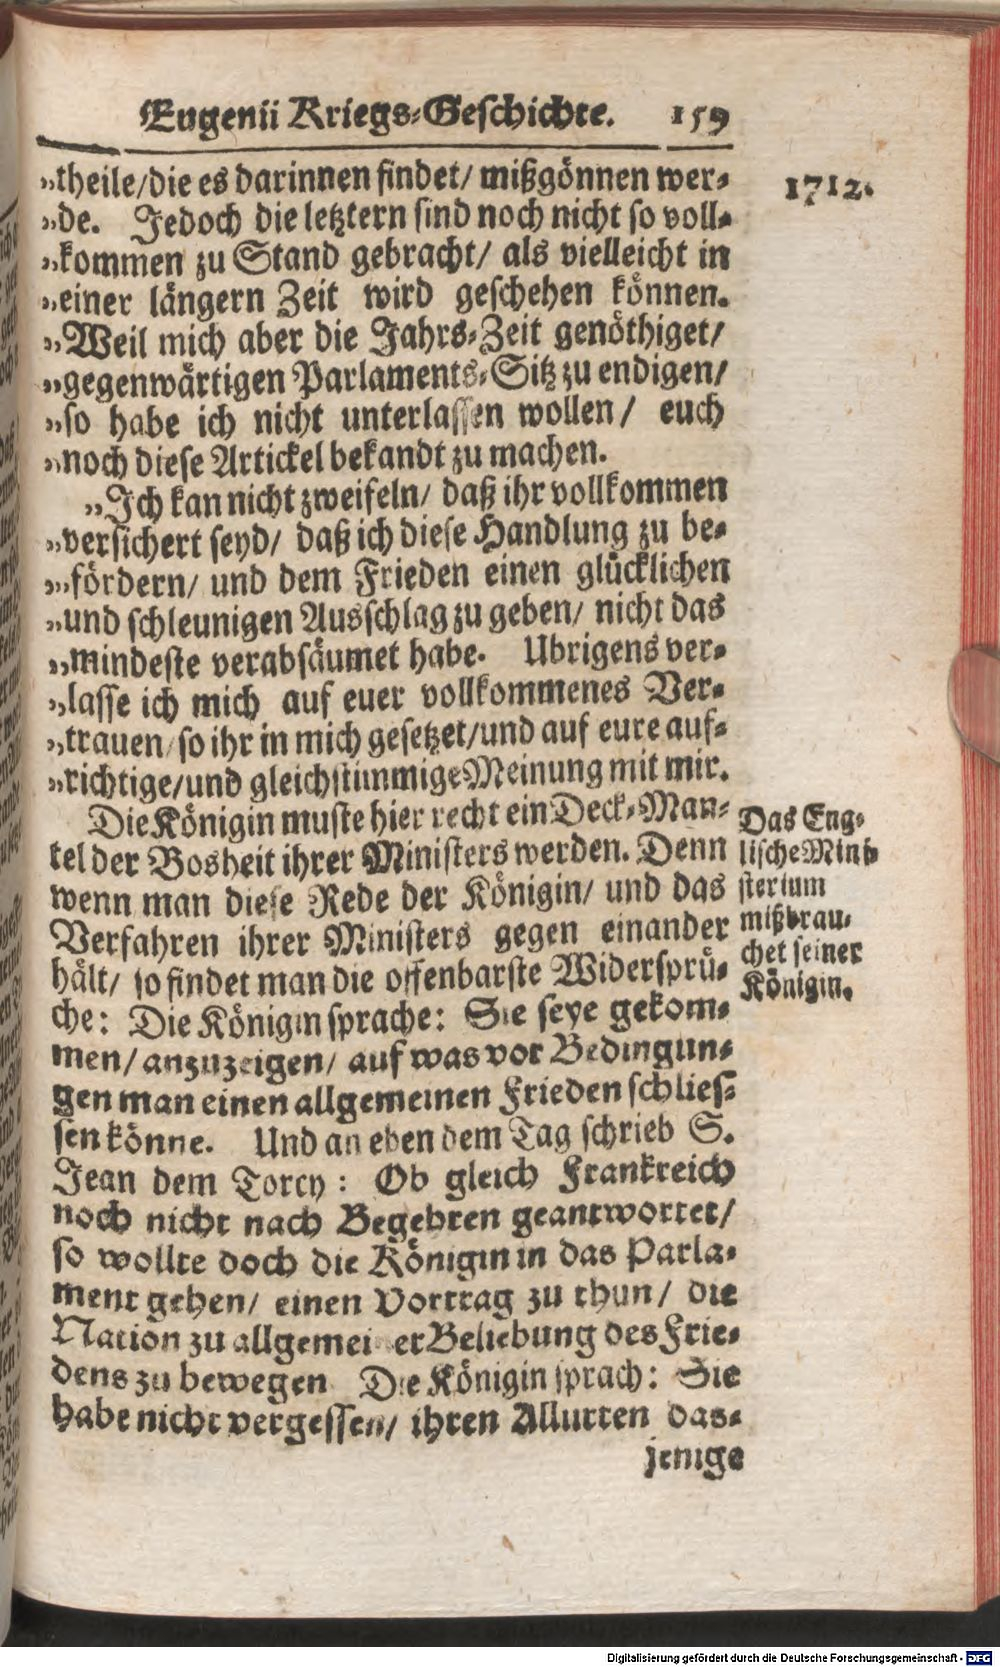 Eugenii Kriegs-Geschichte. 159
1712.
„theile/die es darinnen findet/ mißgönnen wer-
„de. Jedoch die letztern sind noch nicht so voll-
„kommen zu Stand gebracht/ als vielleicht in
„einer längern Zeit wird geschehen können.
„Weil mich aber die Jahrs-Zeit genöthiget/
„gegenwärtigen Parlaments-Sitz zu endigen/
„so habe ich nicht unterlassen wollen/ euch
„noch diese Artickel bekandt zu machen.
„Ich kan nicht zweifeln/ daß ihr vollkommen
„versichert seyd/ daß ich diese Handlung zu be-
„fördern/ und dem Frieden einen glücklichen
„und schleunigen Ausschlag zu geben/ nicht das
„mindeste verabsäumet habe. Ubrigens ver-
„lasse ich mich auf euer vollkommenes Ver-
„trauen/so ihr in mich gesetzet/und auf eure auf-
„richtige/und gleichstimmige Meinung mit mir.
Die Königin muste hier recht ein Deck-Man-
tel der Bosheit ihrer Ministers werden. Denn
wenn man diese Rede der Königin/ und das
Verfahren ihrer Ministers gegen einander
hält/ so findet man die offenbarste Widersprü-
che: Die Königin sprache: Sie seye gekom-
men/ anzuzeigen/ auf was vor Bedingun-
gen man einen allgemeinen Frieden schlies-
sen könne. Und an eben dem Tag schrieb S.
Jean dem Torcy: Ob gleich Frankreich
noch nicht nach Begehren geantwortet/
so wollte doch die Königin in das Parla-
ment gehen/ einen Vortrag zu thun/ die
Nation zu allgemeiner Beliebung des Frie-
dens zu bewegen Die Königin sprach: Sie
habe nicht vergessen/ ihren Alliirten das-
jenige
Das Eng-
lische Mini-
sterium
mißbrau-
chet seiner
Königin.
Digitalisierung gefördert durch die Deutsche Forschungsgemeinschaft - DFG